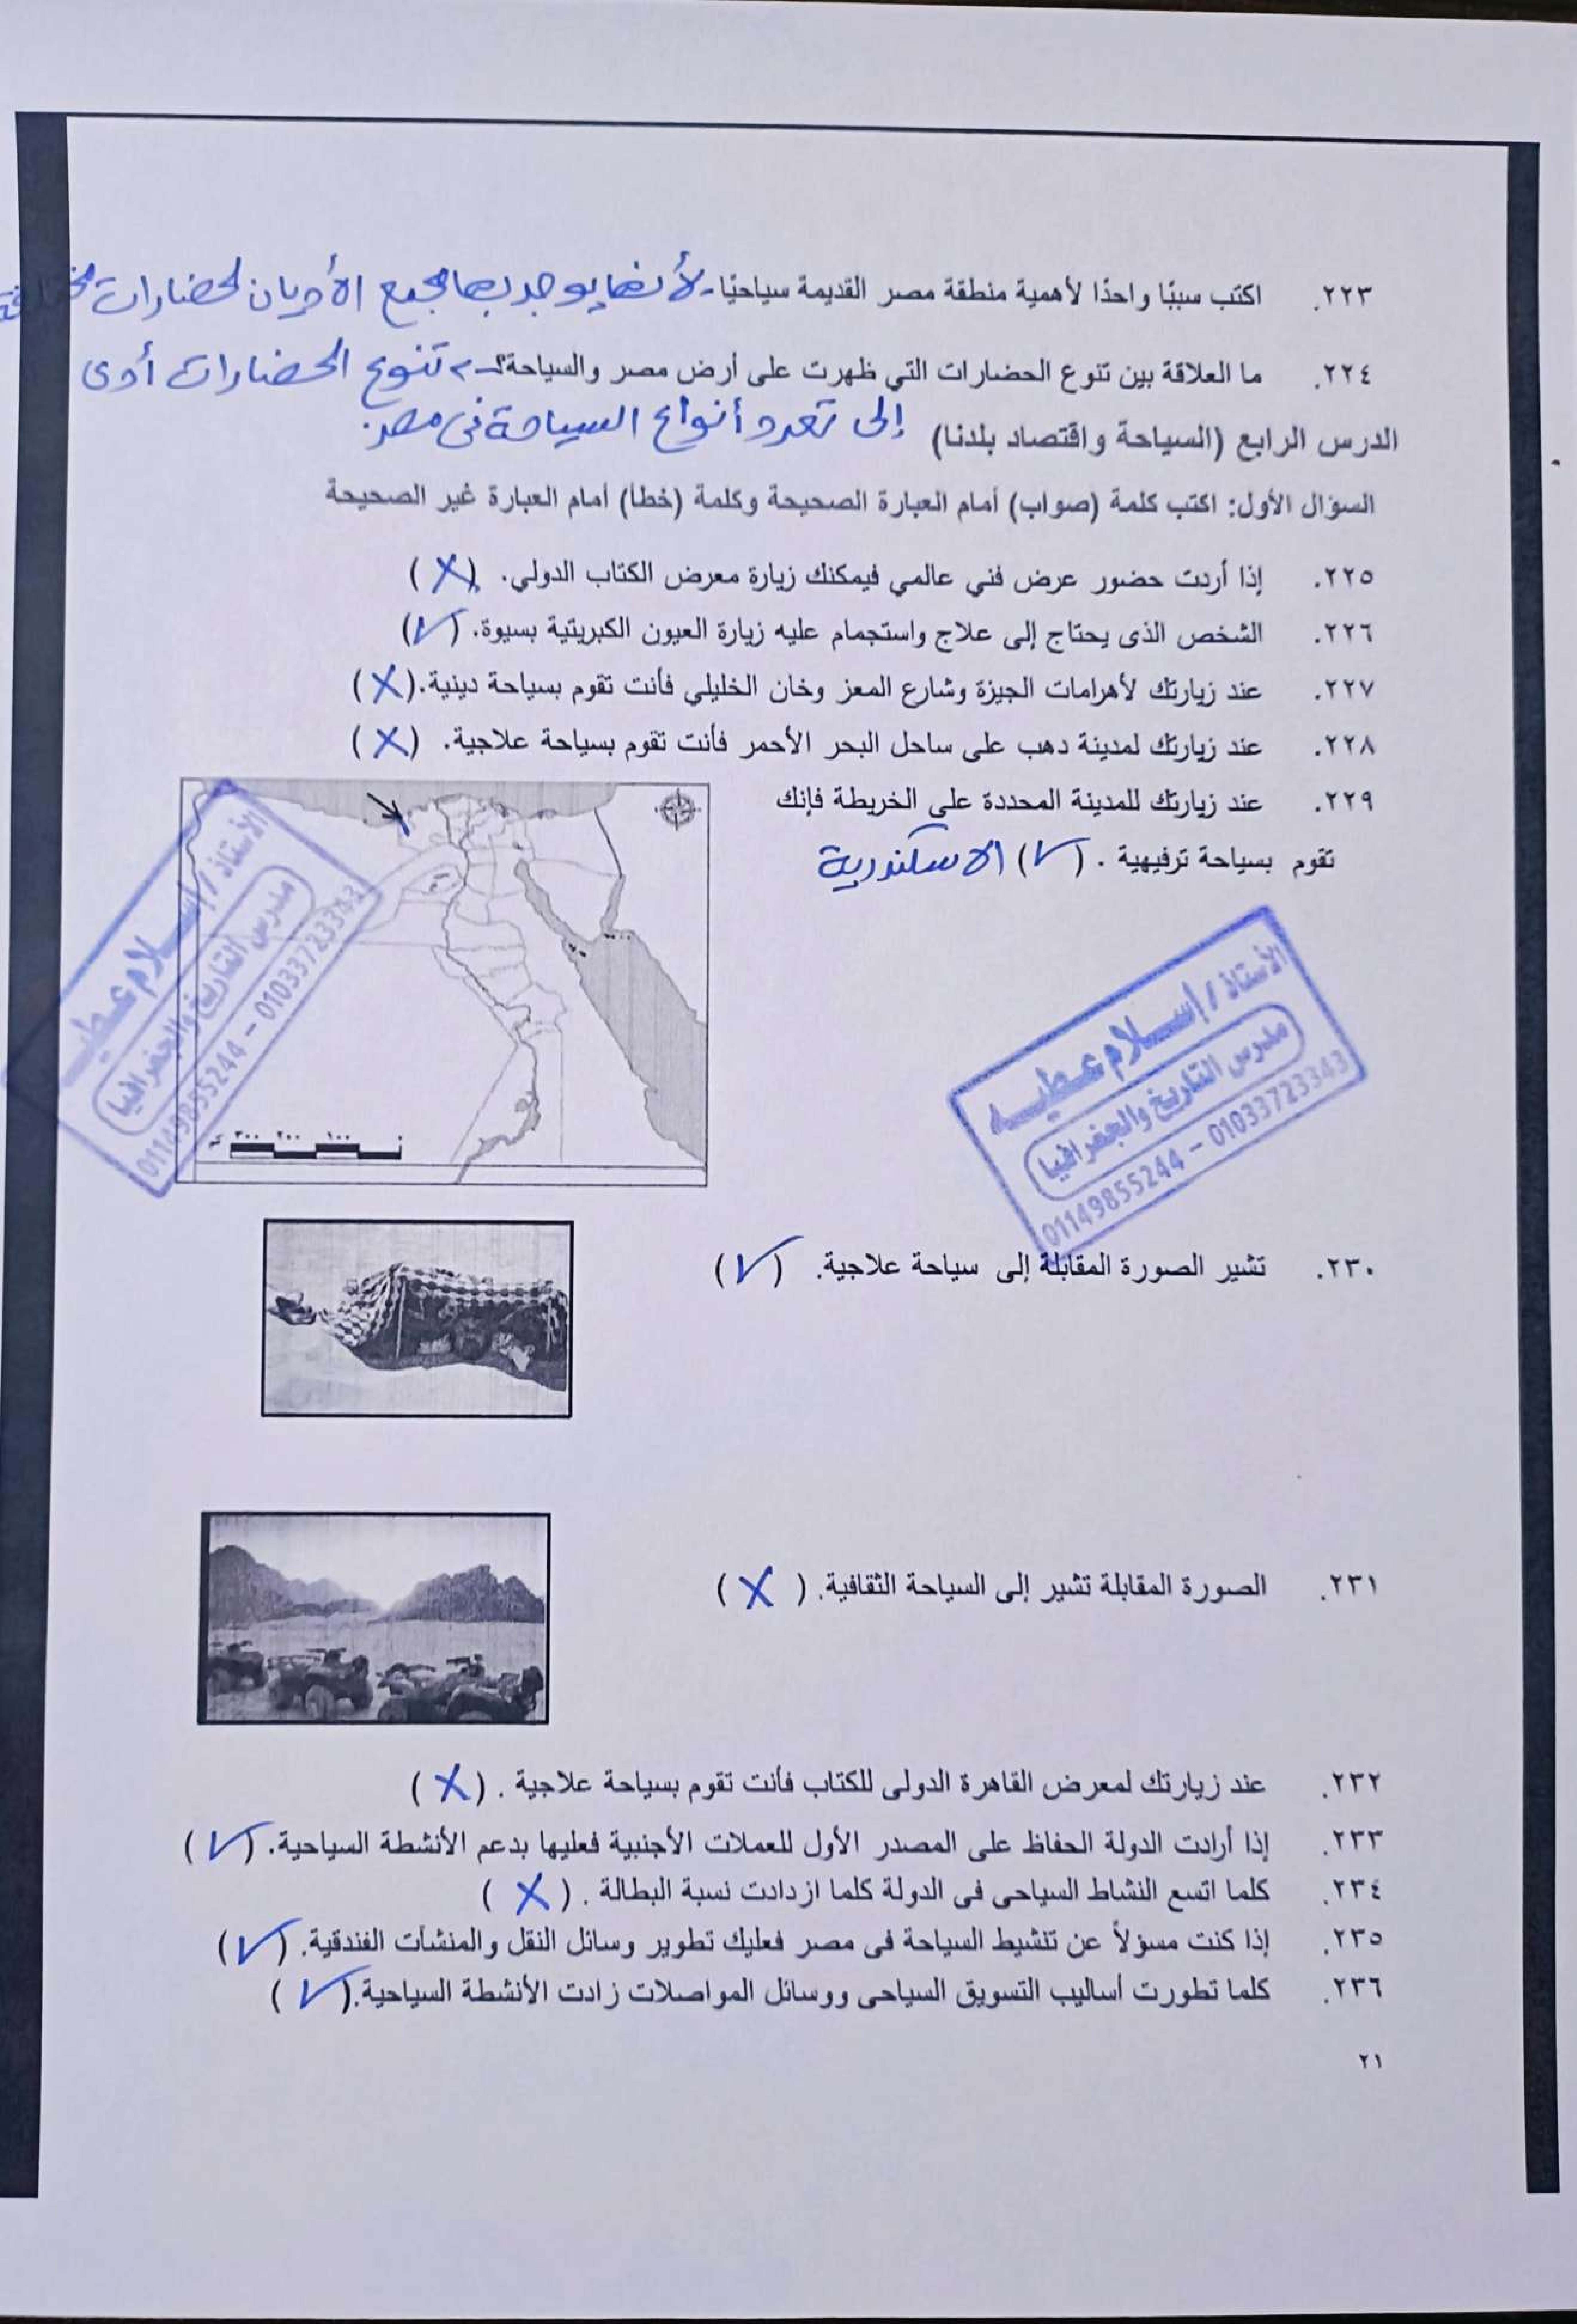 ٢٢٣. اكتب سببًا واحدًا لأهمية منطقة مصر القديمة سياحيًا - لأنها يوجد بها مجمع الأديان لحضارات
٢٢٤. ما العلاقة بين تنوع الحضارات التي ظهرت على أرض مصر والسياحة؟ تنوع الحضارات أدى
إلى تعدد أنواع السياحة فى مصر.
الدرس الرابع (السياحة واقتصاد بلدنا)
السؤال الأول: اكتب كلمة (صواب) أمام العبارة الصحيحة وكلمة (خطأ) أمام العبارة غير الصحيحة
٢٢٥. إذا أردت حضور عرض فني عالمي فيمكنك زيارة معرض الكتاب الدولي. (X)
٢٢٦. الشخص الذى يحتاج إلى علاج واستجمام عليه زيارة العيون الكبريتية بسيوة. (✓)
٢٢٧. عند زيارتك لأهرامات الجيزة وشارع المعز وخان الخليلي فأنت تقوم بسياحة دينية. (X)
٢٢٨. عند زيارتك لمدينة دهب على ساحل البحر الأحمر فأنت تقوم بسياحة علاجية. (X)
٢٢٩. عند زيارتك للمدينة المحددة على الخريطة فإنك
تقوم بسياحة ترفيهية . (✓) الاسكندرية
الأستاذ / إسلام عطيه
مدرس التاريخ والجغرافيا
01149855244 - 01033723343
٣٠٠ ٢٠٠ ١٠٠
الأستاذ / إسلام عطيه
مدرس التاريخ والجغرافيا
01149855244 - 01033723343
٢٣٠. تشير الصورة المقابلة إلى سياحة علاجية. (✓)
٢٣١. الصورة المقابلة تشير إلى السياحة الثقافية. (X)
٢٣٢. عند زيارتك لمعرض القاهرة الدولى للكتاب فأنت تقوم بسياحة علاجية . (X)
٢٣٣. إذا أرادت الدولة الحفاظ على المصدر الأول للعملات الأجنبية فعليها بدعم الأنشطة السياحية. (✓)
٢٣٤. كلما اتسع النشاط السياحى فى الدولة كلما ازدادت نسبة البطالة . (X)
٢٣٥. إذا كنت مسؤلاً عن تنشيط السياحة فى مصر فعليك تطوير وسائل النقل والمنشآت الفندقية. (✓)
٢٣٦. كلما تطورت أساليب التسويق السياحى ووسائل المواصلات زادت الأنشطة السياحية. (✓)
٢١